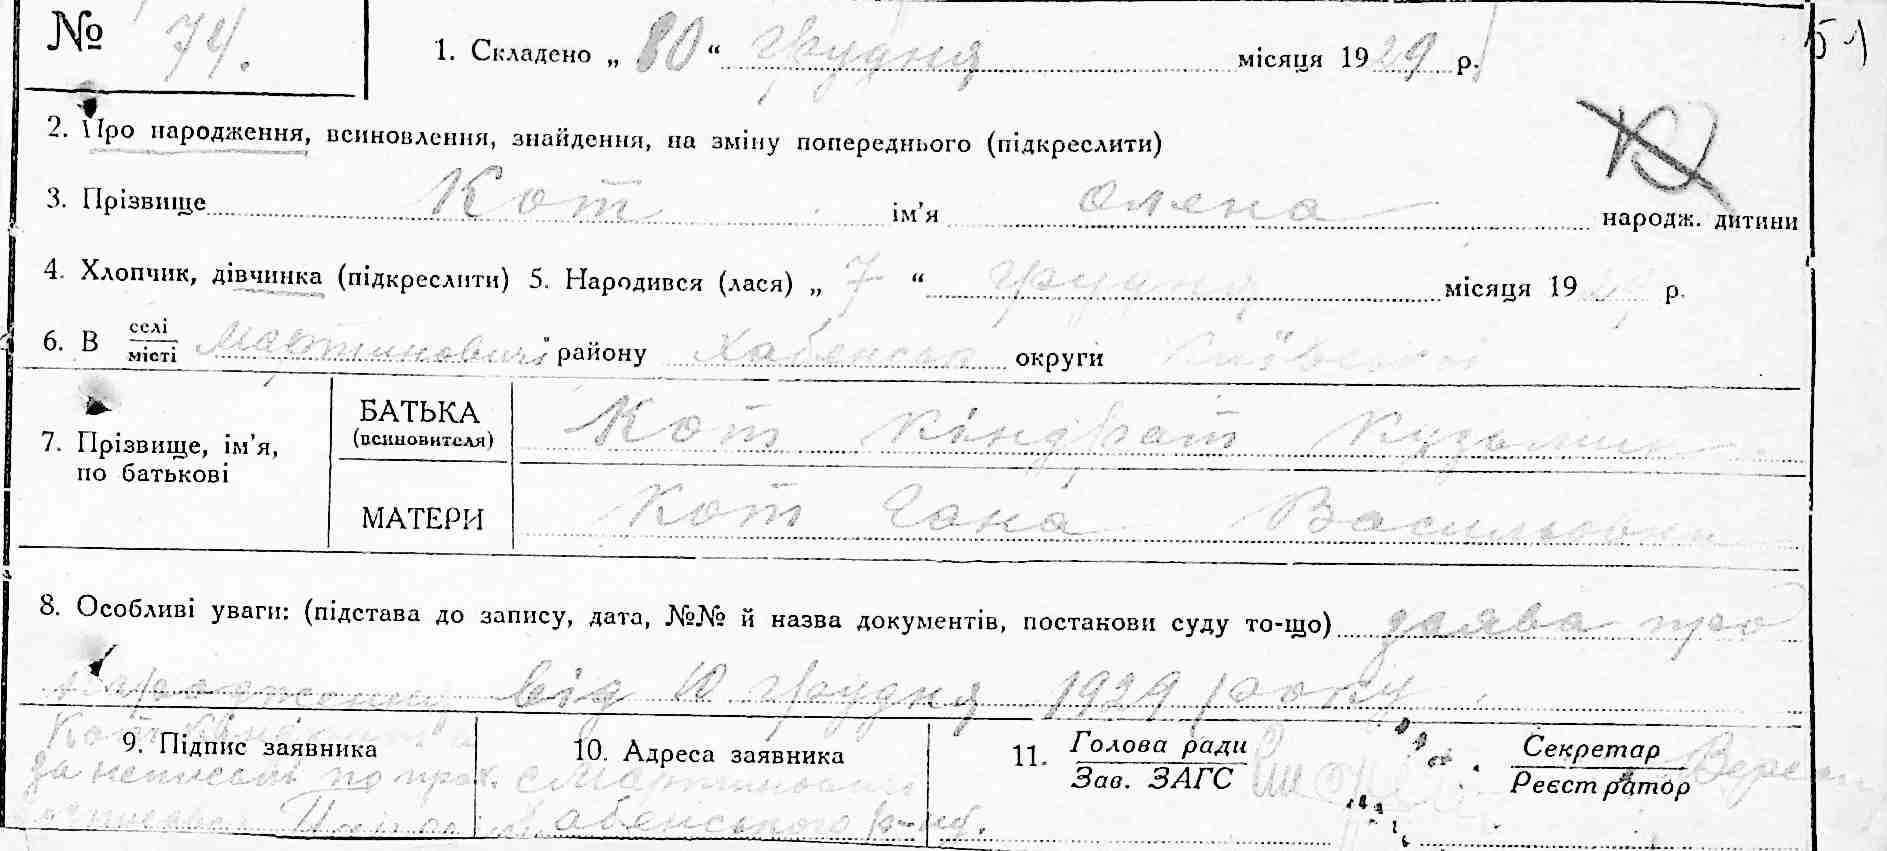 № 74.
1. Складено „ 10 “ грудня місяця 19 29 р.
51
2. Про народження, всиновлення, знайдення, на зміну попереднього (підкреслити)
3. Прізвище Кот ім'я Олена народж. дитини
4. Хлопчик, дівчинка (підкреслити) 5. Народився (лася) „ 7 “ грудня місяця 19 29 р.
6. В селі/місті Мартиновичі району Хабенськ округи Київської
7. Прізвище, ім'я, по батькові
БАТЬКА (всиновителя) Кот Кіндрат Кузьмич
МАТЕРИ Кот Гана Васильовна
8. Особливі уваги: (підстава до запису, дата, №№ й назва документів, постанови суду то-що) заява про
народження від 10 грудня 1929 року.
9. Підпис заявника Кот
за неписьм по прох.
10. Адреса заявника с Мартиновичі
Хабенського р-ну.
11. Голова ради
Зав. ЗАГС
Секретар
Реєстратор